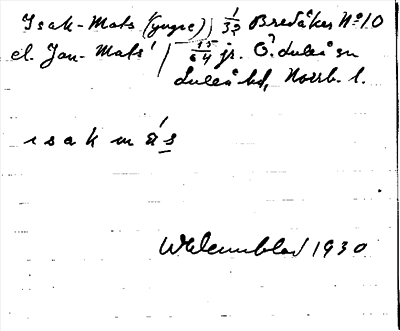 Isak-Mats (yngre)) 1/32 Bredåker No 10
el. Jan-Mats' 35/64 jr. Ö. Luleå sn
Luleå hd, Norrb. l.
i s a k m á s
1930